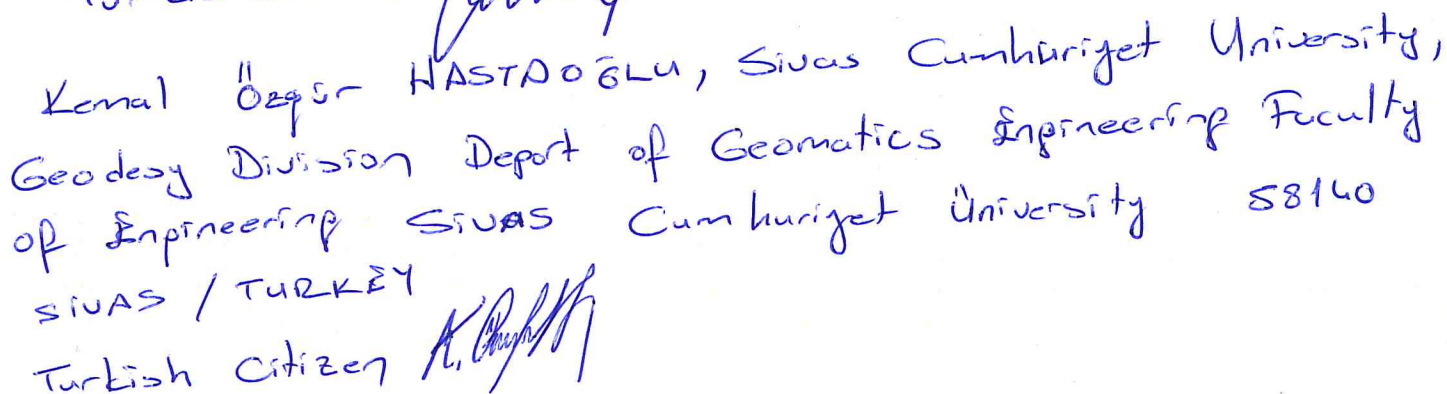 Kemal Özgür HASTAOĞLU, Sivas Cumhuriyet University,
Geodesy Division Depart of Geomatics Engineering Faculty
of Engineering SIVAS Cumhuriyet Üniversity 58140
SİVAS / TURKEY
Turkish Citizen